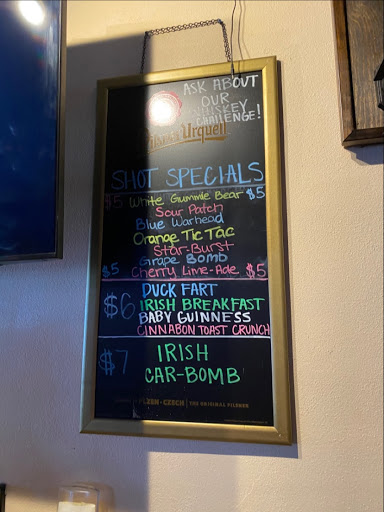 ASK ABOUT
OUR
WHISKEY
CHALLENGE!
Pilsner Urquell
SHOT SPECIALS
$5 White Gummie Bear $5
Sour Patch
Blue Warhead
Orange Tic Tac
Star-Burst
Grape Bomb
$5 Cherry Lime-Ade $5
DUCK FART
$6 IRISH BREAKFAST
BABY GUINNESS
CINNABON TOAST CRUNCH
$7 IRISH
CAR-BOMB
PLZEN • CZECH | THE ORIGINAL PILSNER